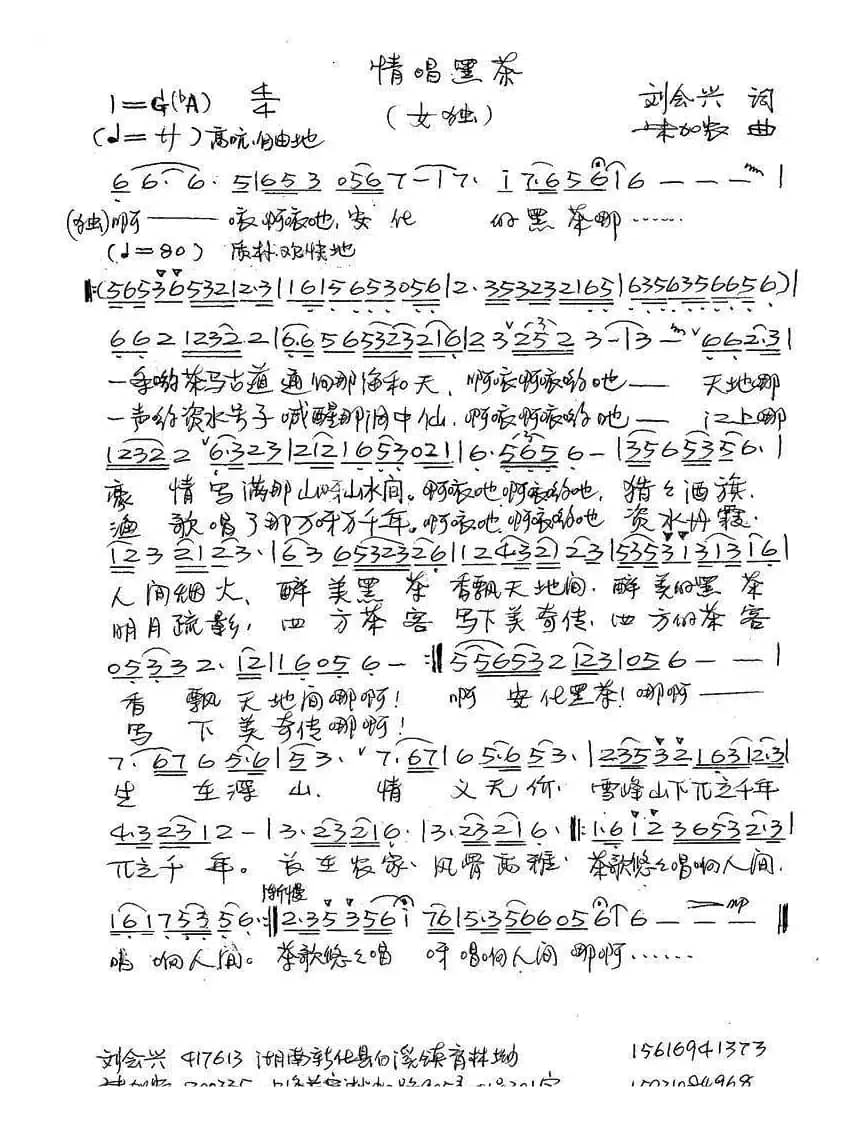 情唱黑茶
1=G(♭A) 4/4 (女独) 刘会兴 词
(♩=サ) 高吭.自由地 加农 曲
6 6· 6· 5|6 5 3 0 5 6 7 — 1 7· i 7·6 5 6 i 6 — — — |
(独)啊—— 咳啊咳吔,安化 的黑茶哪……
(♩=80) 质朴.欢快地
‖:(5653653212·3|161565305 6|2·353232165|63563566 5 6)|
6 6 2 1232 2|6·6 5 6532321 6|2 3 2 5 2 3—|3 — 6 6 2·3|
茶马古道通向那海和天,啊咳啊咳哟吔—— 天地哪
一声哟资水号子喊醒那洞中仙.啊咳啊咳哟吔—— 江上哪
1232 2 6·323|21216 53021|6·565 6 —|35653 5 6·|
豪情写满那山呀山水间。啊咳吔啊咳哟吔, 猎々酒旗.
渔歌唱了那万呀万千年。啊咳吔.啊咳哟吔 资水丹霞.
1 2 3 2 1 2 3·|6 3 6532326|12 4321 2 3|535313131 6|
人间烟火、醉美黑茶香飘天地间.醉美的黑茶
明月疏影,四方茶客写下美奇传.四方的茶客
05332· 12|16056 —:‖5 56532 123|056 — —|
香飘天地间哪啊! 啊 安化黑茶!哪啊——
写下美奇传哪啊!
7·676 5·6|53· 7·67|6 5·6 5 3·|23532 1632·3|
生在深山. 情义无价. 雪峰山下屹立千年
4·3 23 1 2 —|3·23216·|3·23216·‖:1·612 36532·3|
屹立千年。长在农家、风骨高雅. 茶歌悠々唱响人间.
渐慢
16175356·:‖2·35356 i 76|5·3566056↑6 — — — mp‖
唱响人间。茶歌悠々唱 呀唱响人间哪啊……
刘会兴 417613 湖南新化县白溪镇育林坳 15616941373